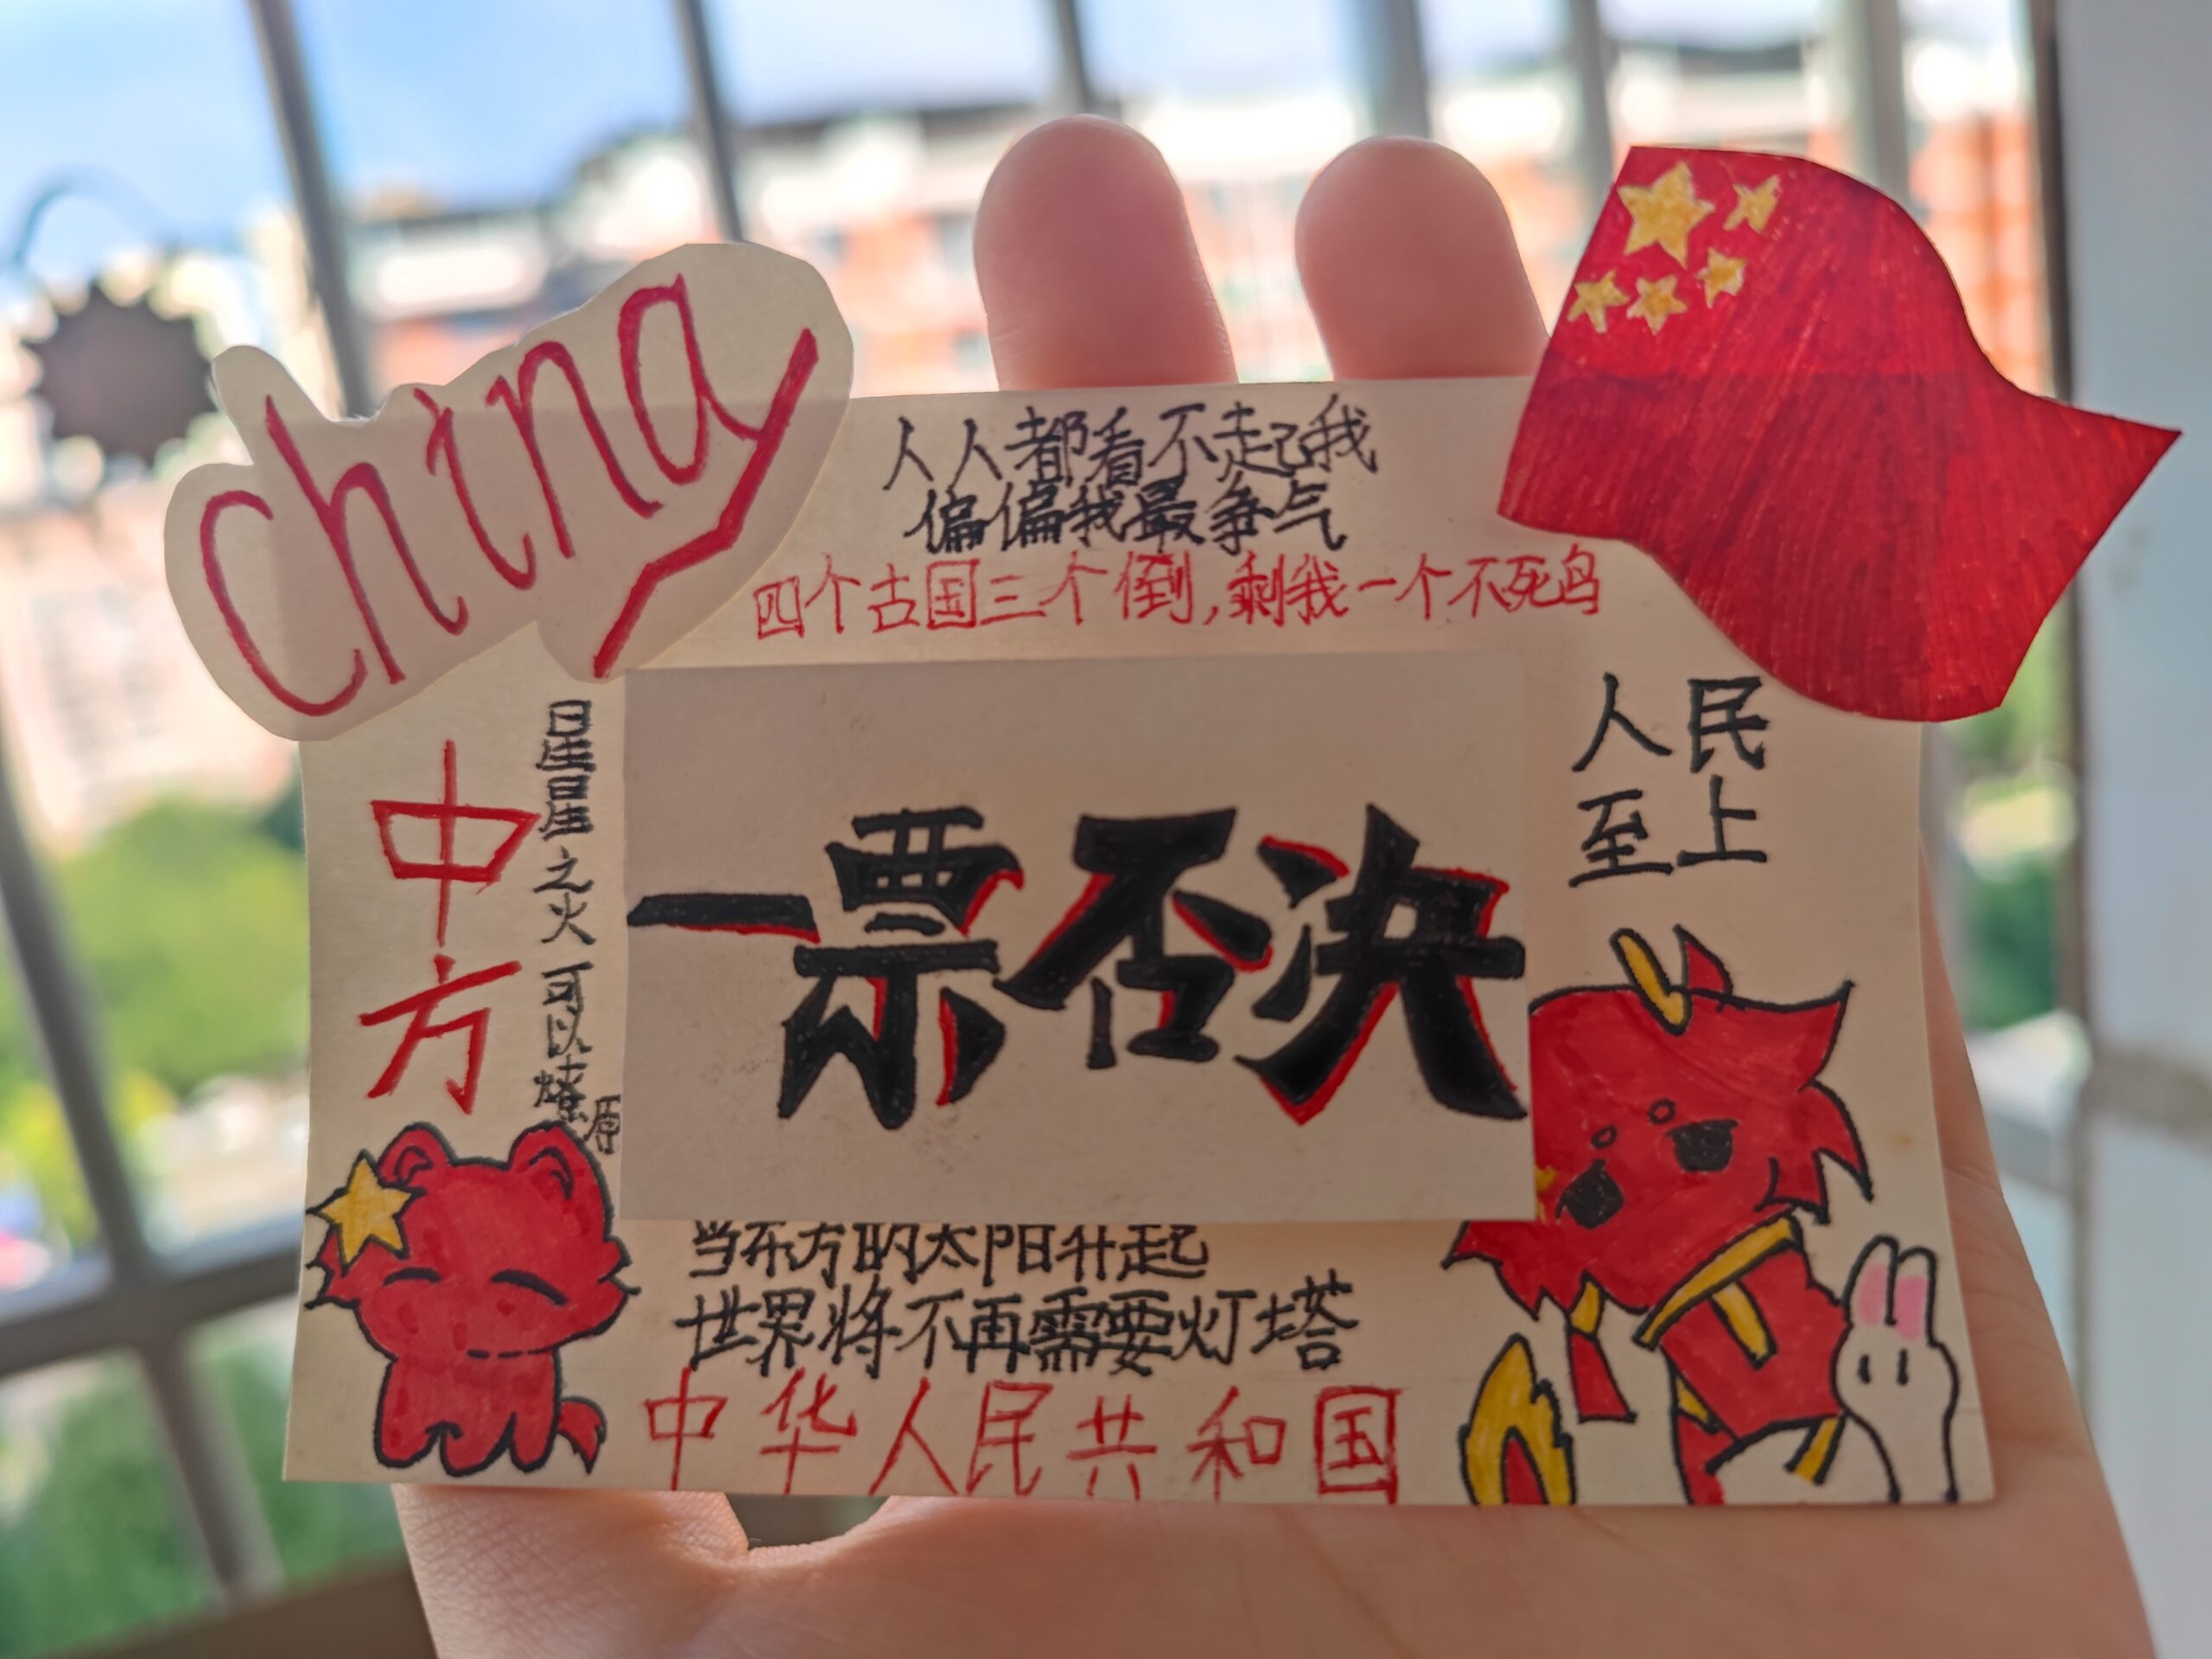 china
人人都看不起我
偏偏我最争气
四个古国三个倒,剩我一个不死鸟
中方
星星之火可以燎原
一票否决
人民
至上
当东方的太阳升起
世界将不再需要灯塔
中华人民共和国